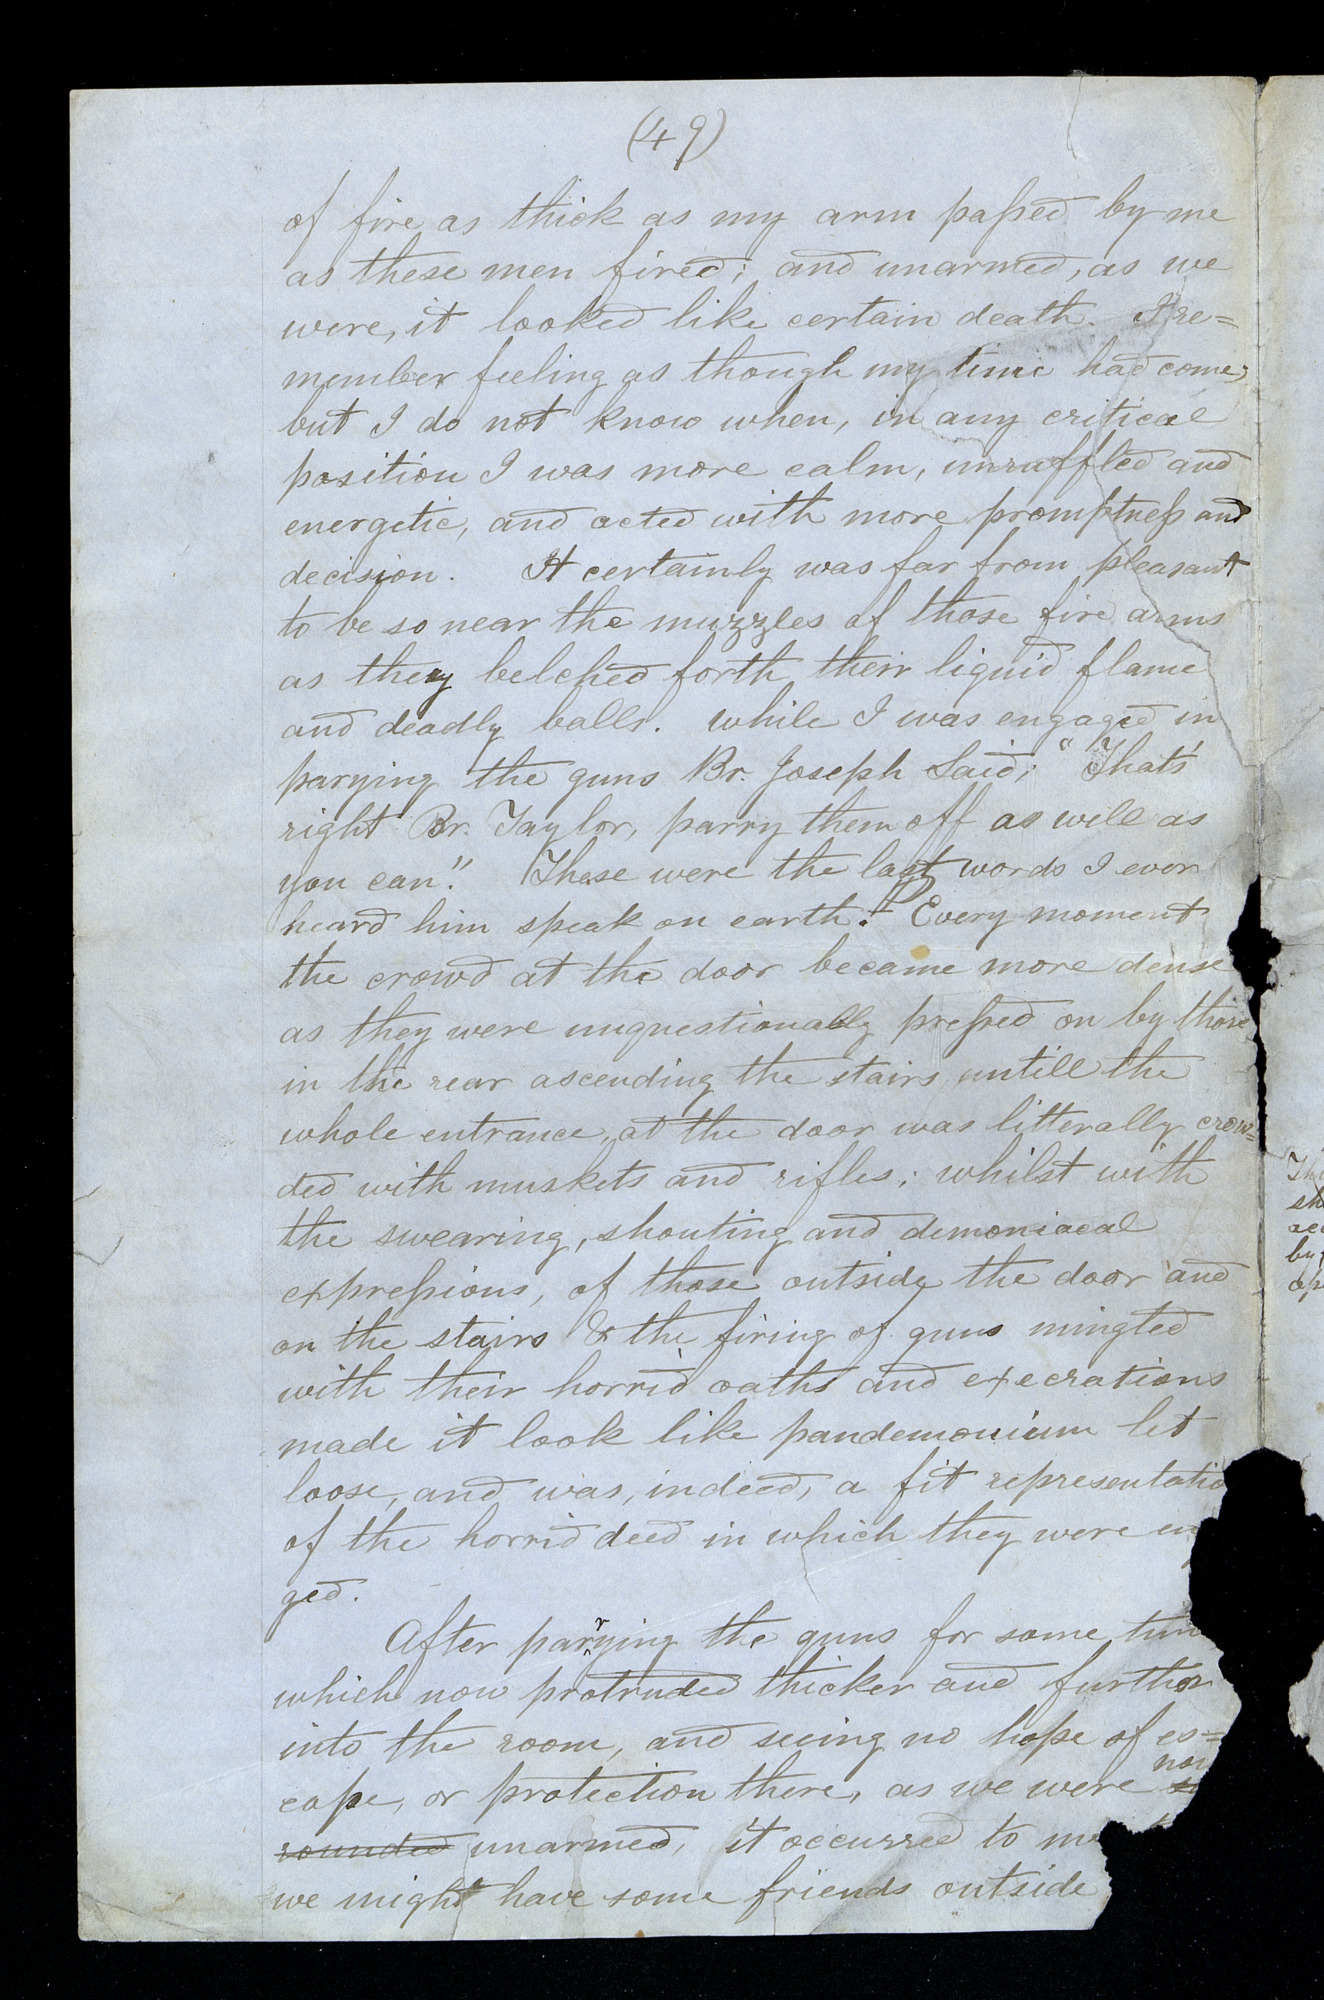 (49)
of fire as thick as my arm passed by me
as these men fired; and unarmed, as we
were, it looked like certain death. I re=
member feeling as though my time had come,
but I do not know when, in any critical
position I was more calm, unruffled and
energetic, and acted with more promptness and
decision. It certainly was far from pleasant
to be so near the muzzles of those fire arms
as they belched forth their liquid flame
and deadly balls. While I was engaged in
parying the guns Br. Joseph Said; "That's
right Br. Taylor, parry them off as well as
you can." These were the last words I ever
heard him speak on earth. Every moment
the crowd at the door became more dense
as they were unquestionably pressed on by those
in the rear ascending the stairs untill the
whole entrance at the door was litterally crow=
ded with muskets and rifles; whilst with
the swearing, shouting and demoniacal
expressions, of those outside the door and
on the stairs & the firing of guns mingled
with their horrid oaths and execrations
made it look like pandemonium let
loose, and was, indeed, a fit representatio
of the horrid deed in which they were en
ged.
After parrying the guns for some time
which now protruded thicker and further
into the room, and seeing no hope of es=
cape, or protection there, as we were now
rounded unarmed, it occurred to me
we might have some friends outside